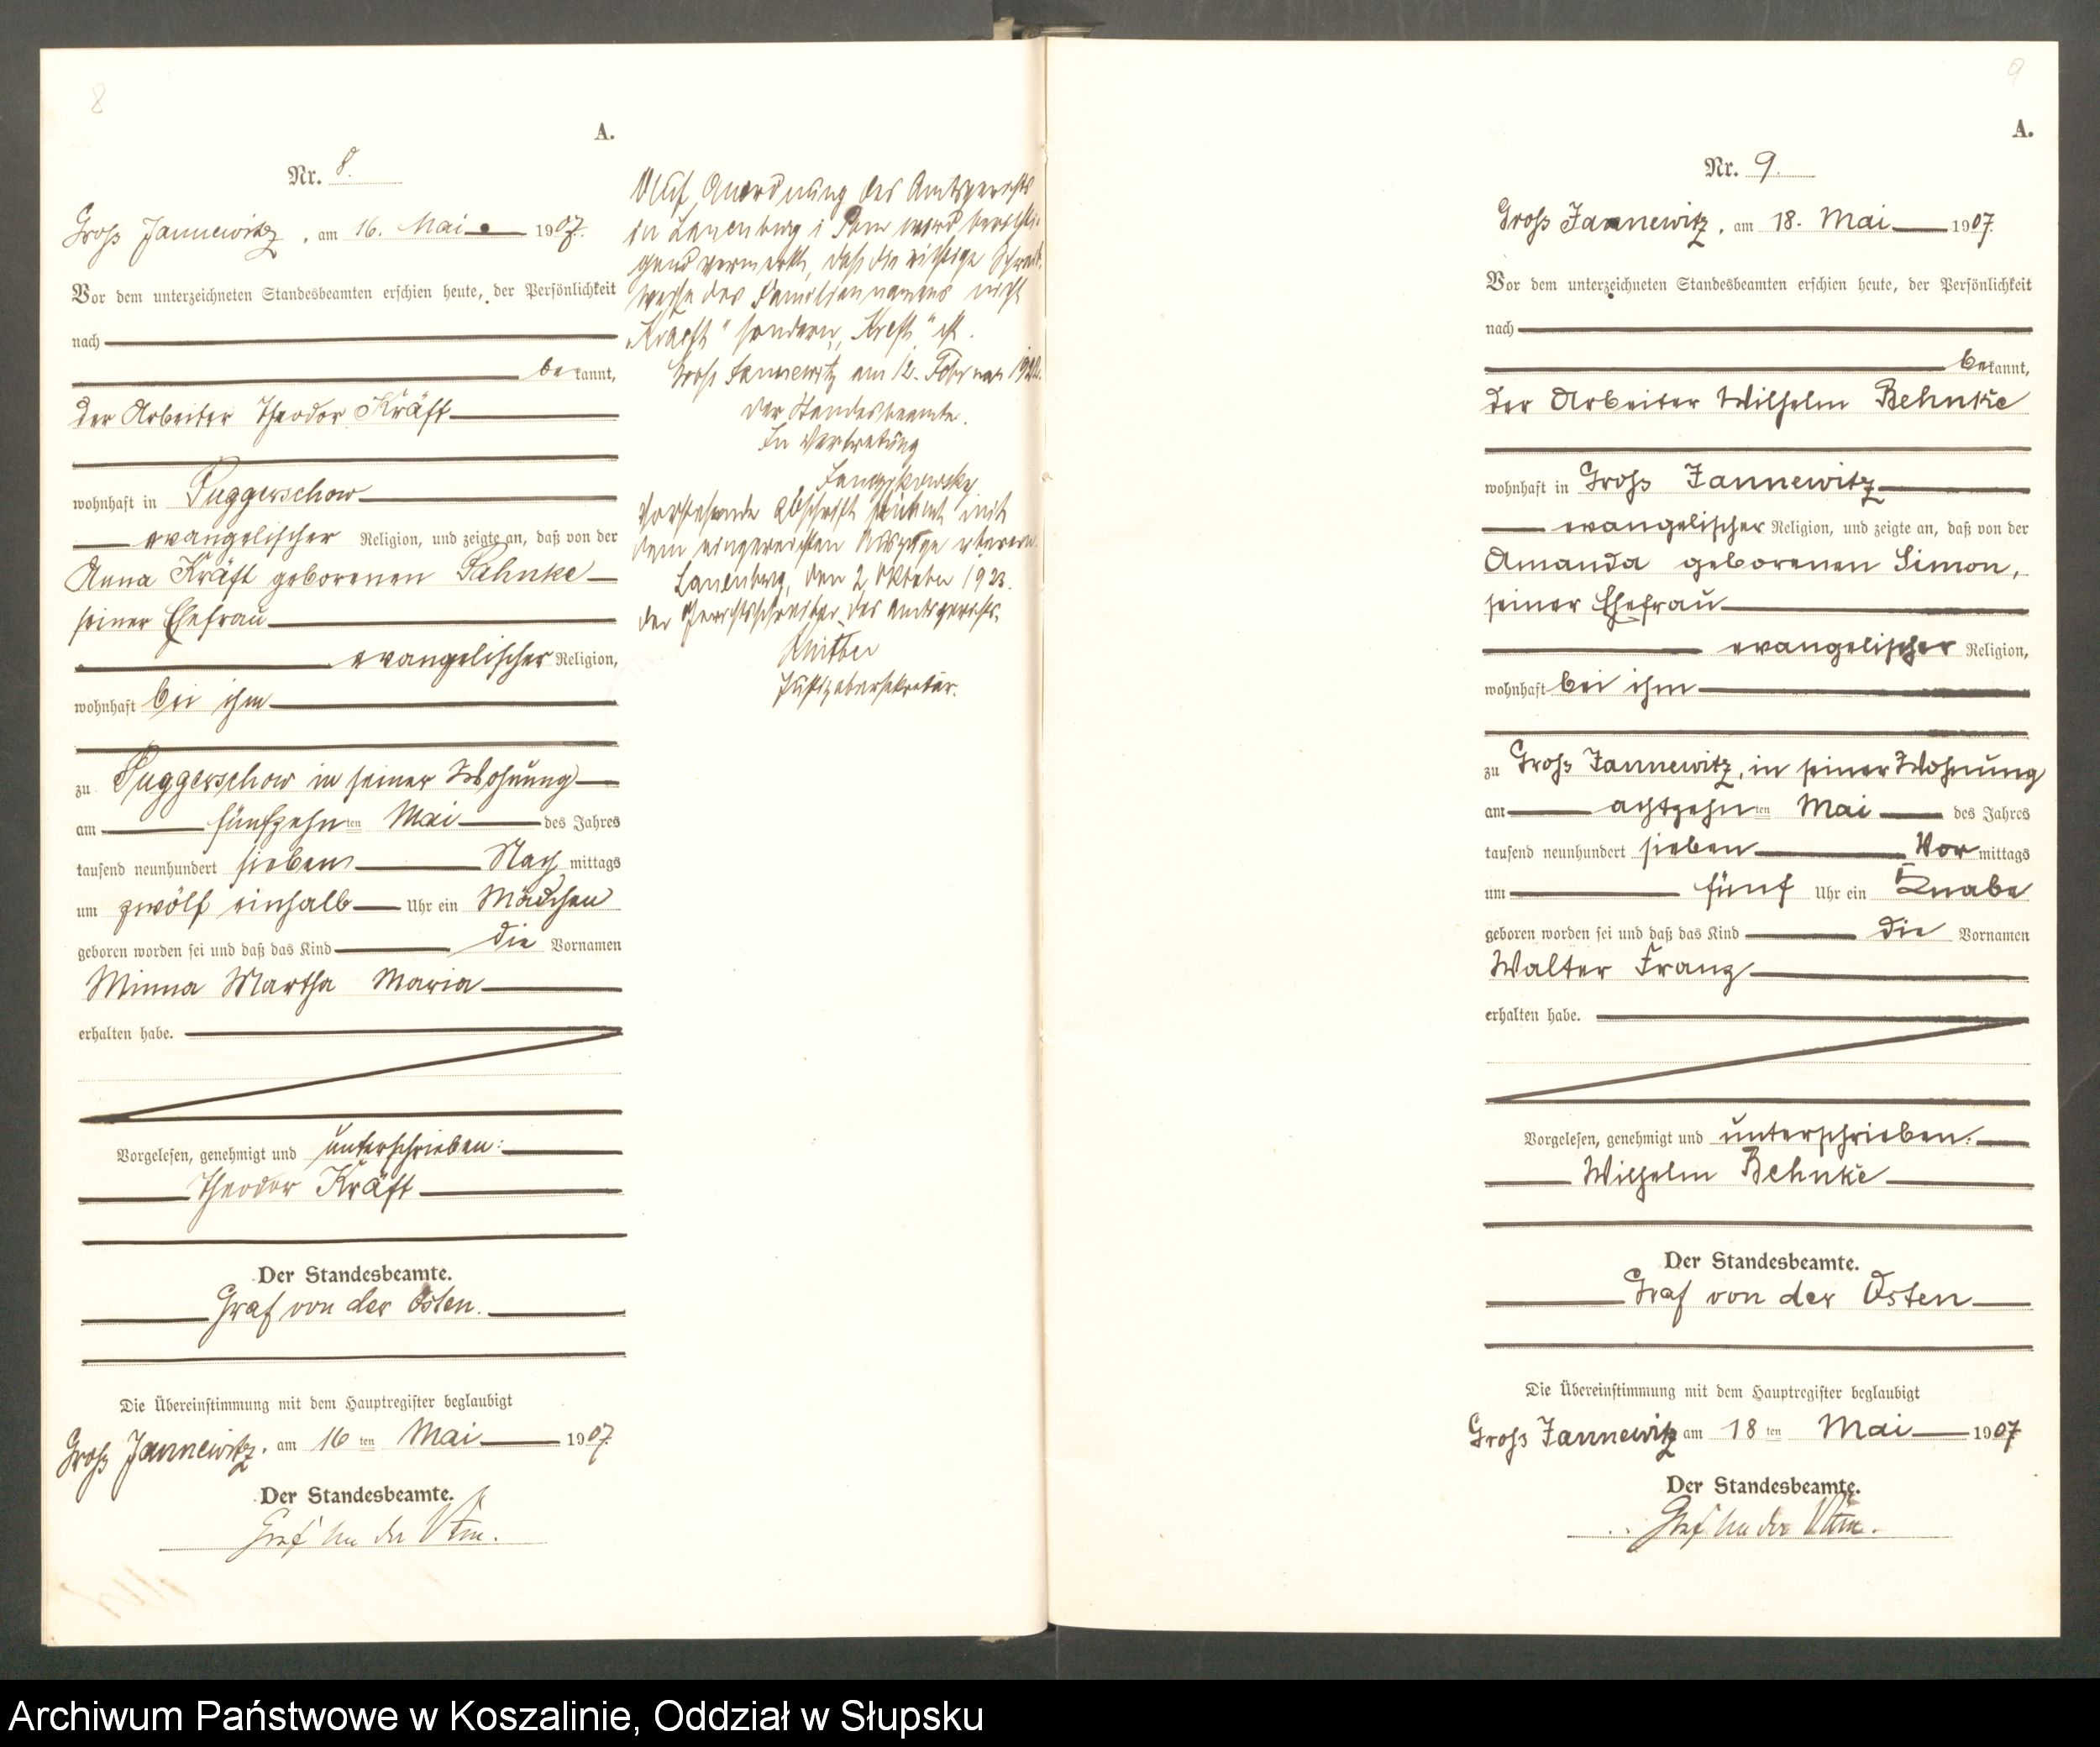 8
A.
Nr. 8.
Groß Jannewitz, am 16. Mai 1907.
Vor dem unterzeichneten Standesbeamten erschien heute, der Persönlichkeit
nach
bekannt,
der Arbeiter Theodor Kräft
wohnhaft in Puggerschow
evangelischer Religion, und zeigte an, daß von der
Anna Kräft geborenen Pahnke
seiner Ehefrau
evangelischer Religion,
wohnhaft bei ihm
zu Puggerschow in seiner Wohnung
am fünfzehnten Mai des Jahres
tausend neunhundert sieben Nachmittags
um zwölf einhalb Uhr ein Mädchen
geboren worden sei und daß das Kind die Vornamen
Minna Martha Maria
erhalten habe.
Vorgelesen, genehmigt und unterschrieben:
Theodor Kräft
Der Standesbeamte.
Graf von der Osten.
Die Übereinstimmung mit dem Hauptregister beglaubigt
Groß Jannewitz, am 16ten Mai 1907.
Der Standesbeamte.
Graf von der Osten.
Auf Anordnung des Amtsgerichts
in Lauenburg i Pom wird berichti-
gend vermerkt, daß die richtige Schreib-
weise des Familiennamens nicht
"Kraeft" sondern "Kreft" ist.
Groß Jannewitz am 12. Februar
Der Standesbeamte.
In Vertretung
Vorstehende Abschrift stimmt mit
dem eingereichten Auszuge überein.
Lauenburg, den 2 Oktober 1923.
der Gerichtsschreiber des Amtsgerichts.
Justizobersekretär.
9
A.
Nr. 9.
Groß Jannewitz, am 18. Mai 1907.
Vor dem unterzeichneten Standesbeamten erschien heute, der Persönlichkeit
nach
bekannt,
der Arbeiter Wilhelm Behnke
wohnhaft in Groß Jannewitz
evangelischer Religion, und zeigte an, daß von der
Amanda geborenen Simon,
seiner Ehefrau
evangelischer Religion,
wohnhaft bei ihm
zu Groß Jannewitz, in seiner Wohnung
am achtzehnten Mai des Jahres
tausend neunhundert sieben Vormittags
um fünf Uhr ein Knabe
geboren worden sei und daß das Kind die Vornamen
Walter Franz
erhalten habe.
Vorgelesen, genehmigt und unterschrieben:
Wilhelm Behnke
Der Standesbeamte.
Graf von der Osten
Die Übereinstimmung mit dem Hauptregister beglaubigt
Groß Jannewitz am 18ten Mai 1907
Der Standesbeamte.
Graf von der Osten.
Archiwum Państwowe w Koszalinie, Oddział w Słupsku